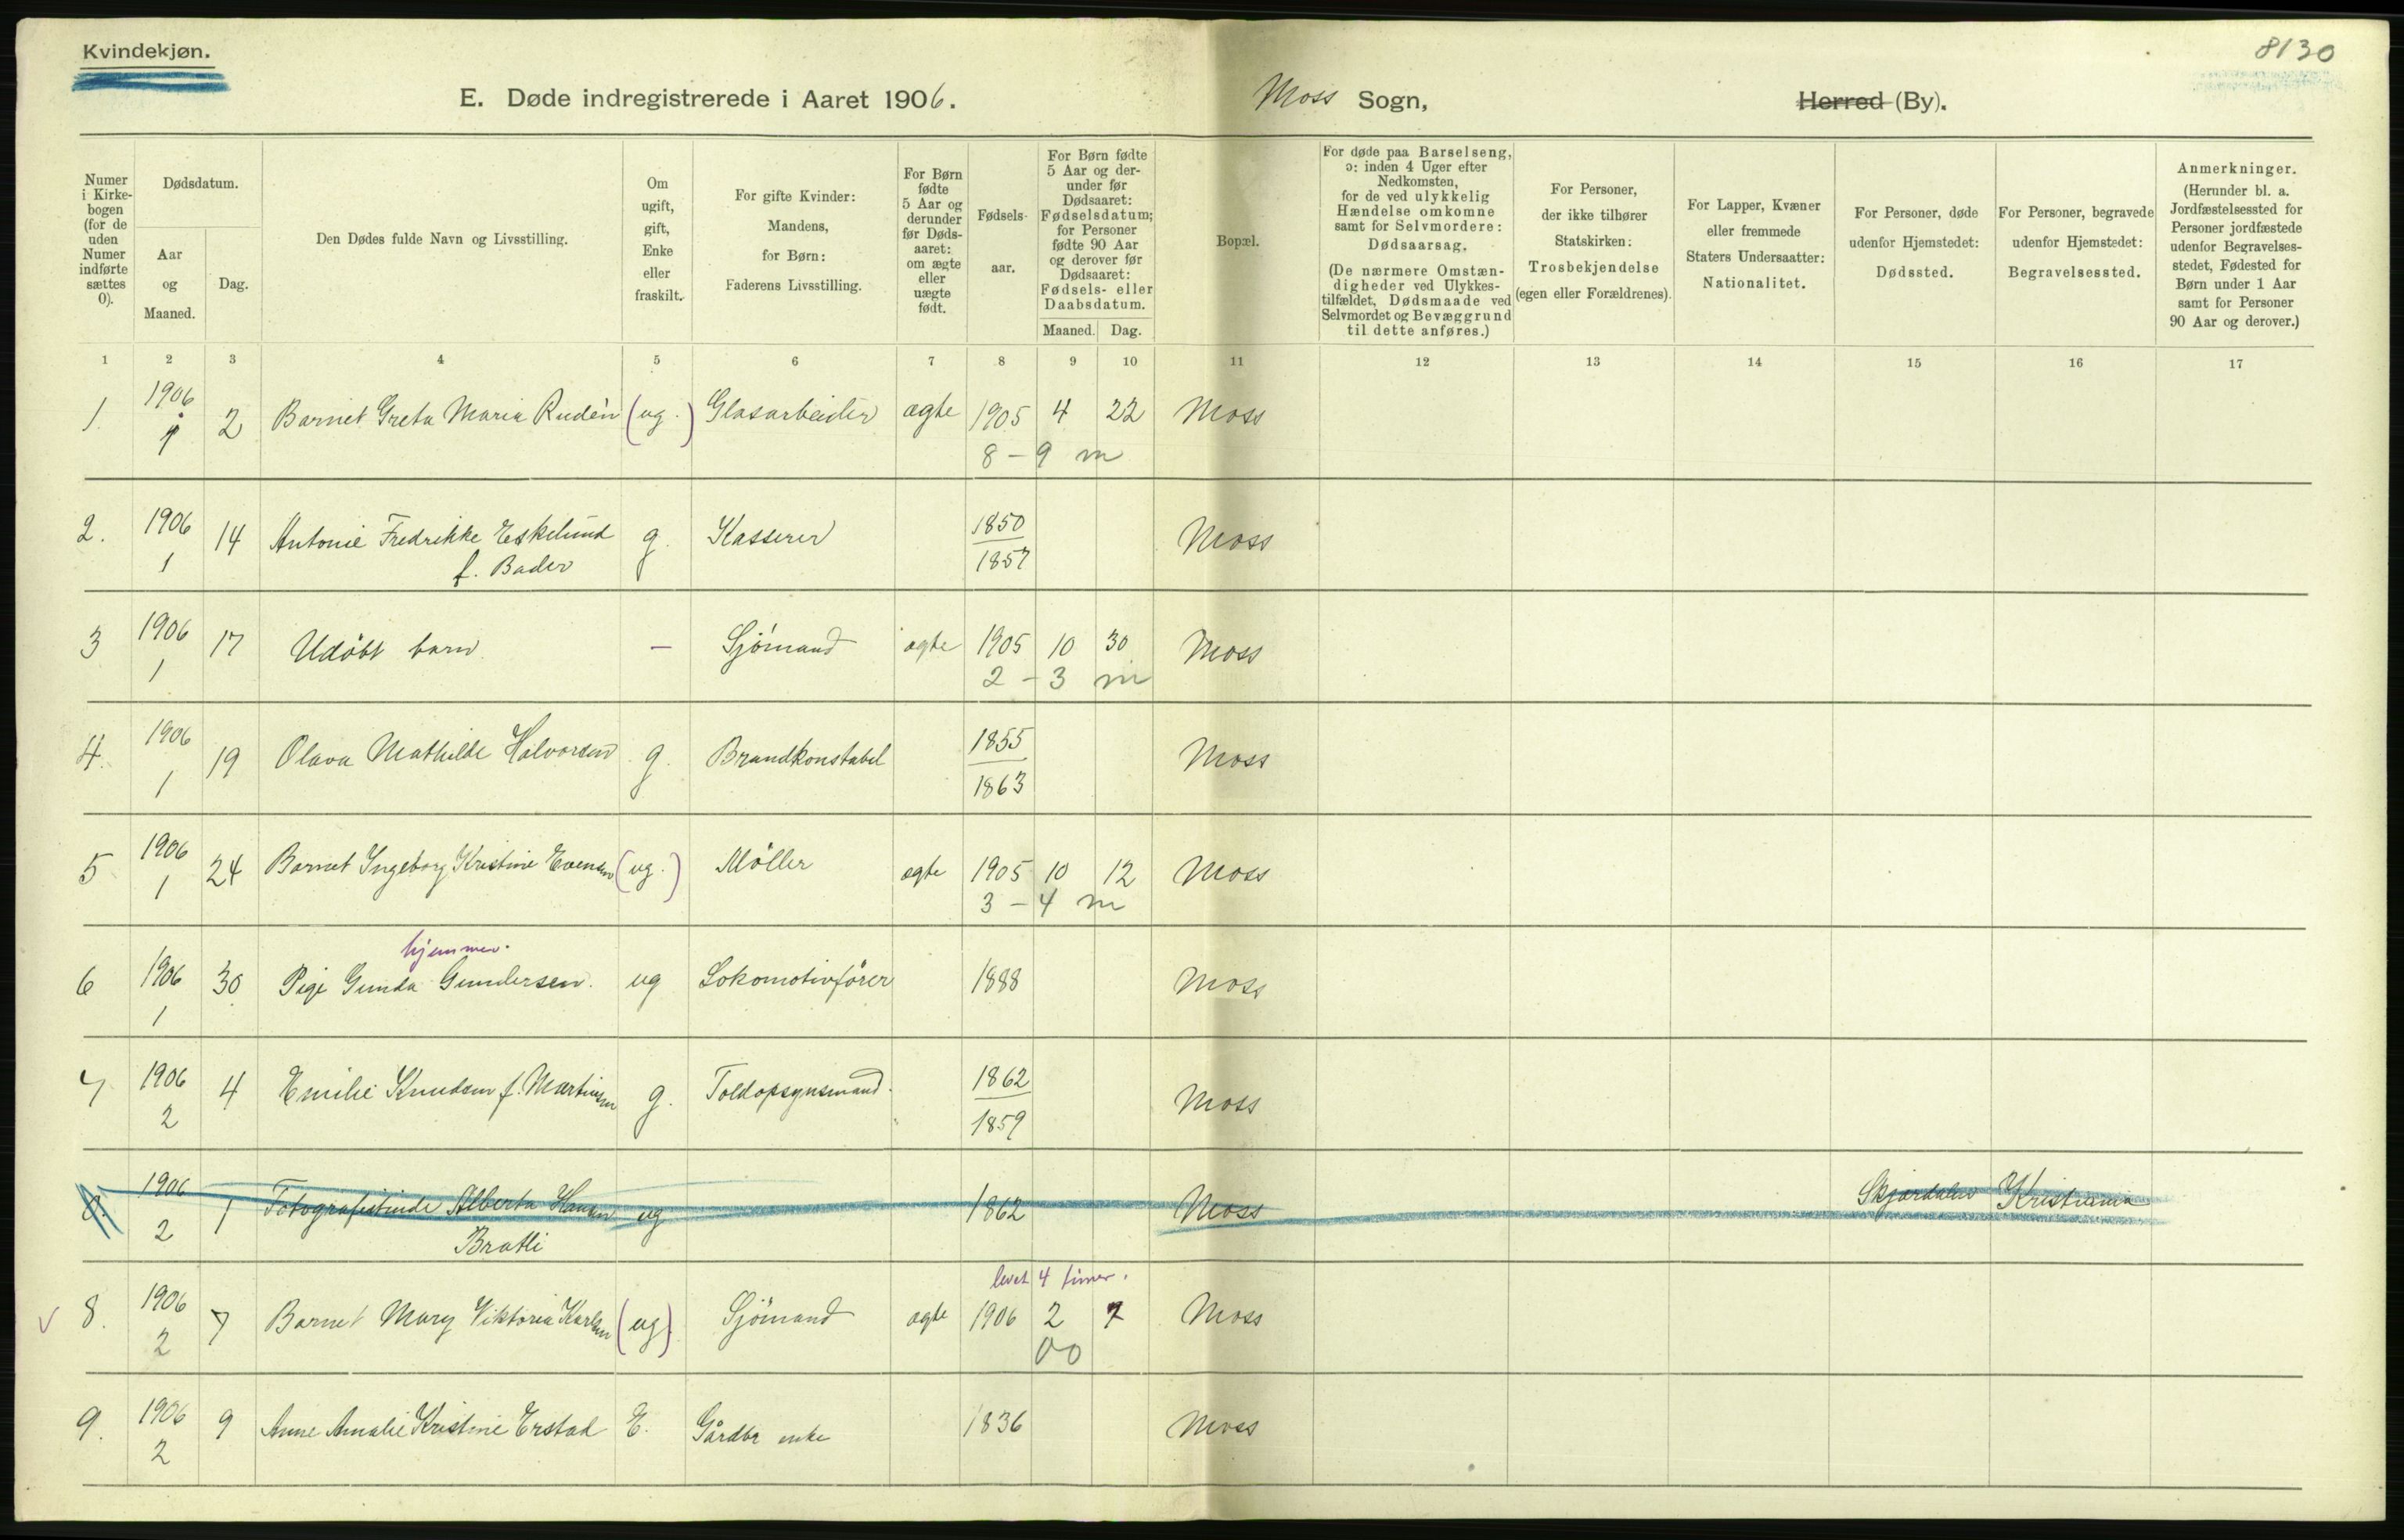 Kvindekjøn.
8130
E. Døde indregistrerede i Aaret 1906.
Moss Sogn,
Herred (By).
Numer i Kirkebogen (for de uden Numer indførte sættes 0).
Dødsdatum.
Aar og Maaned.
Dag.
Den Dødes fulde Navn og Livsstilling.
Om ugift, gift, Enke eller fraskilt.
For gifte Kvinder: Mandens, for Børn: Faderens Livsstilling.
For Børn fødte 5 Aar og derunder før Dødsaaret: om ægte eller uægte født.
Fødselsaar.
For Børn fødte 5 Aar og derunder før Dødsaaret: Fødselsdatum; for Personer fødte 90 Aar og derover før Dødsaaret: Fødsels- eller Daabsdatum.
Maaned. Dag.
Bopæl.
For døde paa Barselseng, ɔ: inden 4 Uger efter Nedkomsten, for de ved ulykkelig Hændelse omkomne samt for Selvmordere: Dødsaarsag.
(De nærmere Omstændigheder ved Ulykkestilfældet, Dødsmaade ved Selvmordet og Bevæggrund til dette anføres.)
For Personer, der ikke tilhører Statskirken: Trosbekjendelse (egen eller Forældrenes).
For Lapper, Kvæner eller fremmede Staters Undersaatter: Nationalitet.
For Personer, døde udenfor Hjemstedet: Dødssted.
For Personer, begravede udenfor Hjemstedet: Begravelsessted.
Anmerkninger. (Herunder bl. a. Jordfæstelsessted for Personer jordfæstede udenfor Begravelsesstedet, Fødested for Børn under 1 Aar samt for Personer 90 Aar og derover.)
1 2 3 4 5 6 7 8 9 10 11 12 13 14 15 16 17
1. 1906 1 2 Barnet Greta Maria Rudén (ug.) Glasarbeider ægte 1905 4 22 Moss
8 - 9 m
2. 1906 1 14 Antonie Fredrikke Eskelund g. Kasserer 1850 Moss
f. Bader 1857
3 1906 1 17 Udøbt barn. — Sjömand ægte 1905 10 30 Moss
2 - 3 m
4. 1906 1 19 Olava Mathilde Halvorsen g. Brandkonstabel 1855 Moss
1863
5 1906 1 24 Barnet Ingeborg Kristine Evensen (ug.) Möller ægte 1905 10 12 Moss
3 - 4 m
hjemmev.
6 1906 1 30 Pige Gunda Gundersen. ug Lokomotivförer 1888 Moss
7 1906 2 4 Emilie Knudsen f. Martinsen g. Toldopsynsmand. 1862 Moss
1859
1906 2 1 Fotografistinde Alberta Hansen ug 1862 Moss Skjærdalen Kristiania
Bratli
levet 4 timer.
8. 1906 2 7 Barnet Mary Viktoria Karlsen (ug) Sjömand ægte 1906 2 7 Moss
00
9. 1906 2 9 Anne Amalie Kristine Erstad E. Gårdbr enke 1836 Moss